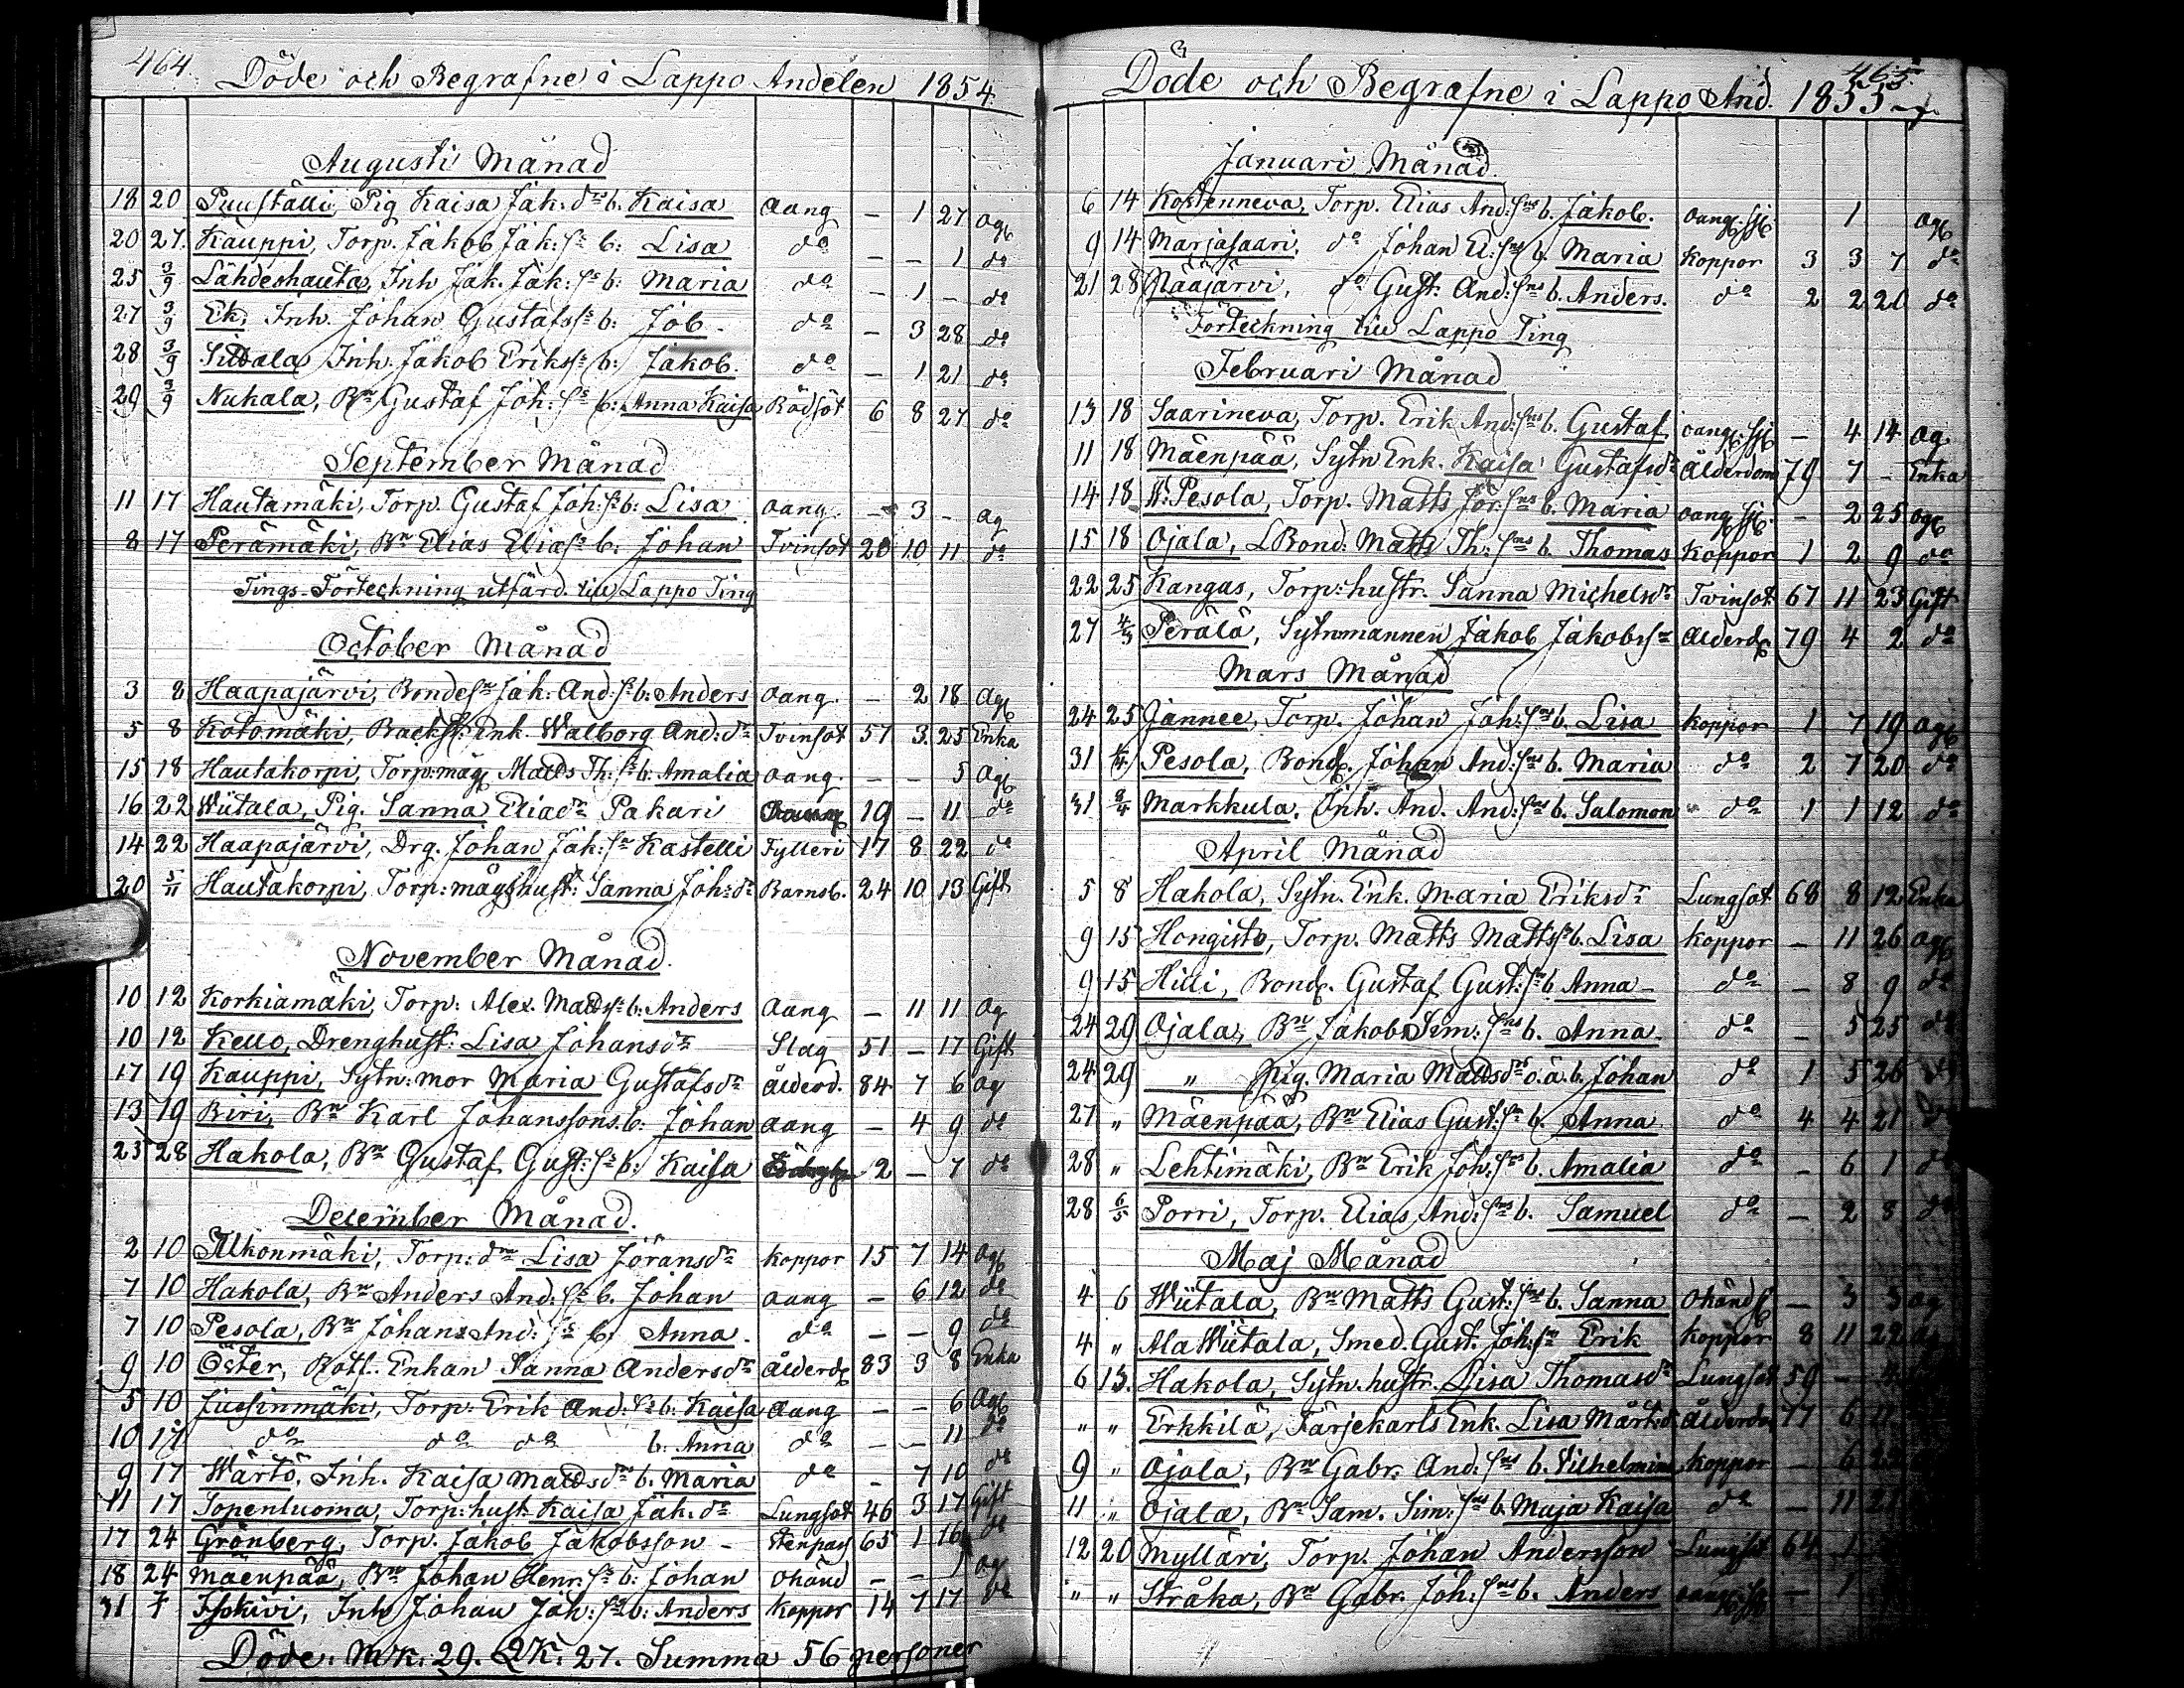 464.
Döde och Begrafne i Lappo Andelen 1854.
Augusti Månad
18 20 Puuställi, Pig Kaisa Jak: dr b. Kaisa aang — 1 27 og
20 27. Kauppi, Torp. Jakob Jak: s: b: Lisa do — — 1 do
25 3/9 Lähdeshauta, Inh Jak. Jak: s: b: Maria do — 1 — do
27 3/9 Ek, Inh. Johan Gustafss: b: Job. do — 3 28 do
28 3/9 Inh. Jakob Erikss: b: Jakob. do — 1 21 do
29 3/9 Nukala, Bn Gustaf Joh: s: b: Anna Kaisa Rödsot 6 8 27 do
September Månad
11 17 Hautamäki, Torp. Gustaf Joh: s: b: Lisa aang. — 3 — og
8 17 Perämäki, Bn Elias Elias: b: Johan Tvinsot 20 10 11 do
Tings-Förteckning utfärd. till Lappo Ting
October Månad
3 8 Haapajärvi, Bonde sn Jak: And: s: b: Anders aang. — 2 18 og
5 8 Kotomäki, Backst: Enk. Walborg And: dr Tvinsot 57 3 25 Enka
15 18 Hautakorpi, Torp: måg Matts Th: s: b: Amalia aang. — — 5 og
16 22 Wiitala, Pig. Sanna Elia dr Pakari 19 — 11 do
14 22 Haapajärvi, Drg. Johan Jak: sn Kastelli Fylleri 17 8 22 do
20 5/11 Hautakorpi, Torp: mågshust: Sanna Joh: dr Barnsb. 24 10 13 Gift
November Månad.
10 12 Korkiamäki, Torp: Alex. Matts s: b: Anders aang — 11 11 og
10 12 Kello, Drenghust: Lisa Johansdr Slag 51 — 17 Gift
17 19 Kauppi, Sytn: mor Maria Gustafsdr Ålderd. 84 7 6 og
13 19 Biri, Bn Karl Johanssons. b: Johan aang — 4 9 do
23 28 Hakola, Bn Gustaf Gust: s: b: Kaisa 2 — 7 do
December Månad.
2 10 Alkonmäki, Torp: dr Lisa Jöransdr koppor 15 7 14 og
7 10 Hakola, Bn Anders And: s: b. Johan aang — 6 12 do
7 10 Pesola, Bn Johans And: s: b: Anna. do — — 9 do
9 10 Öster, Rotl. Enkan Sanna Andersdr Ålderd 83 3 8 Enka
5 10 Jussinmäki, Torp: Erik And: s: b: Kaisa aang — — 6 og
10 17 do do do b: Anna do — — 11 do
9 17 Wärtö, Inh. Kaisa Mattsdr b. Maria do — 7 10 do
11 17 Topenluoma, Torp: hust Kaisa Jak. dr Lungsot 46 3 17 Gift
17 24 Grönberg, Torp. Jakob Jakobsson — Stenpass 65 1 16 do
18 24 Mäenpää, Bn Johan Henr. s: b: Johan okänd — — 1 og
31 Inh Johan Joh: s: b: Anders koppor 14 7 17 do
Döde: Mk. 29. Qk. 27. Summa 56 personer
465.
Döde och Begrafne i Lappo And. 1855
Januari Månad.
6 14 Kostenneva, Torp. Elias And: sns b. Jakob. oang: sjk 1 og
9 14 Marjasaari, do Johan El: sns b. Maria koppor 3 3 7 do
21 28 Naajärvi, do Gust. And: sns b. Anders. do 2 2 20 do
Förteckning till Lappo Ting
Februari Månad
13 18 Saarineva, Torp. Erik And: sns b. Gustaf oang: sjk — 4 14 og
11 18 Mäenpää, Sytn Enk. Kaisa Gustafsdr Ålderdom 79 7 — Enka
14 18 W: Pesola, Torp. Matts Jör: sns b. Maria oang: sjk. — 2 25 og
15 18 Ojala, LBond: Matts Th: sns b. Thomas koppor 1 2 9 do
22 25 Kangas, Torp: hustr. Sanna Michelsdr Tvinsot 67 11 23 Gift
27 4/3 Perälä, Sytnmannen Jakob Jakobss: Ålderd 79 4 2 do
Mars Månad
24 25 Jannee, Torp. Johan Joh: sns b. Lisa koppor 1 7 19 og
31 1/4 Pesola, Bond. Johan And: sns b. Maria do 2 7 20 do
31 9/4 Markkula. Inh. And. And: sns b. Salomon do 1 1 12 do
April Månad
5 8 Hakola, Sytn. Enk. Maria Eriksdr Lungsot 68 8 12 Enka
9 15 Hongisto, Torp. Matts Mattss: b. Lisa koppor — 11 26 og
9 15 Hilli, Bond. Gustaf Gust: s: b. Anna — do — 8 9 do
24 29 Ojala, Bn Jakob Sim: sns b. Anna do — 5 25 do
24 29 " Pig. Maria Mattsdr o.ä. b. Johan do 1 5 26 do
27 " Mäenpää, Bn Elias Gust: sn b. Anna do 4 4 21 do
28 " Lehtimäki, Bn Erik Joh: sns b. Amalia do — 6 1 do
28 6/5 Porri, Torp. Elias And: sns b. Samuel do — 2 8 do
Maj Månad
4 6 Wiitala, Bn Matts Gust: sns b. Sanna okänd — 3 3 og
4 " Ala Wiitala, Smed. Gust. Joh: sn Erik koppor 8 11 22
6 13. Hakola, Sytn. hustr. Lisa Thomasdr Lungsot 59 —
" " Erkkilä, Färjekarls Enk. Lisa Mårt: d. Ålderdm 77 6
9 " Ojala, Bn Gabr. And: sns b. Wilhelmina koppor — 6
11 " Ojala, Bn Sam. Sim: sns b. Maja Kaisa do — 11
12 20 Mylläri, Torp. Johan Andersson Lungsot 64 1
" " Stråka, Bn Gabr. Joh: sns b. Anders oang: sjk — 1